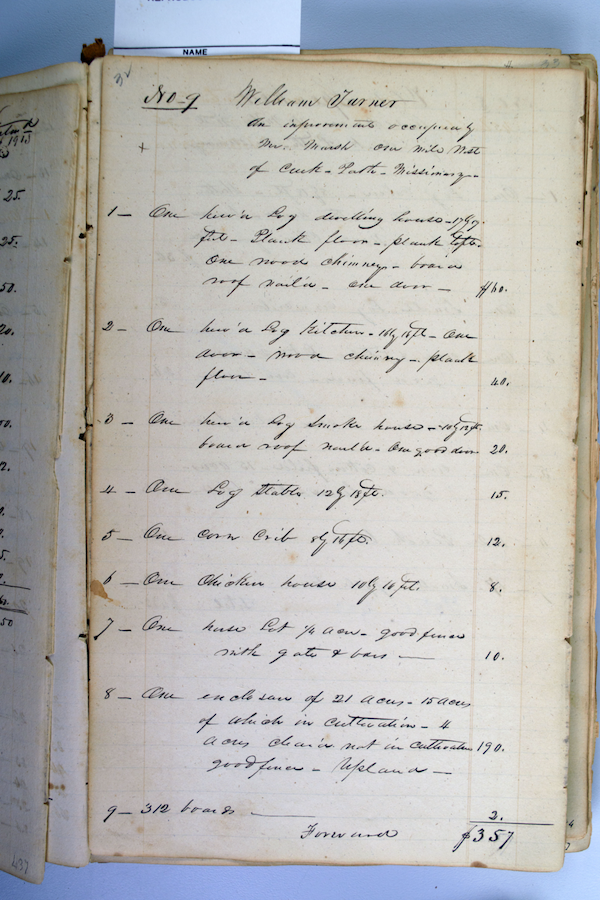 NAME
32
No-9 William Turner
An improvement occupied by
Mrs. Marsh one mile West
of Creek-Path-Missionary-
1- One hew'd Log dwelling house-17by17
feet- Plank floor- plank loft-
One wood chimney- board
roof nail'd- one door- $60.
2- One hew'd Log Kitchen-16by16ft- One
door- wood chimney- plank
floor- 40.
3- One hew'd Log Smoke house-10by12ft.
board roof nail'd- One good door 20.
4- One Log Stable 12by18ft. 15.
5- One corn Crib 8by16ft. 12.
6- One Chicken house 10by10ft. 8.
7- One horse Lot 1/4 acre- good fence
with gate & bars- 10.
8- One enclosure of 21 acres-15acres
of which in cultivation- 4
acres clear'd not in cultivation 190.
good fence- Upland-
9- 312 boards 2.
Forward $357
25.
25.
50.
20.
10.
437